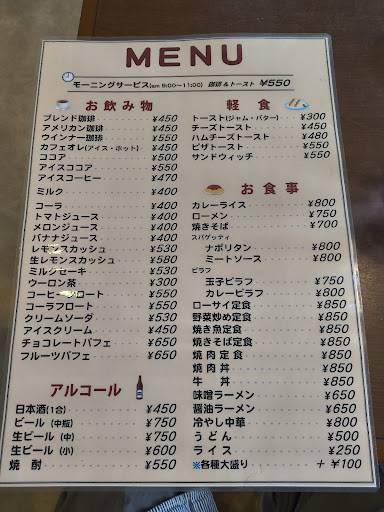 MENU
モーニングサービス(am 9:00〜11:00) 珈琲 & トースト ¥550
お飲み物
ブレンド珈琲 ¥450
アメリカン珈琲 ¥450
ウインナー珈琲 ¥550
カフェオレ(アイス・ホット) ¥450
ココア ¥500
アイスココア ¥550
アイスコーヒー ¥470
ミルク ¥400
コーラ ¥400
トマトジュース ¥400
メロンジュース ¥400
バナナジュース ¥400
レモンスカッシュ ¥530
生レモンスカッシュ ¥580
ミルクセーキ ¥530
ウーロン茶 ¥300
コーヒーフロート ¥550
コーラフロート ¥550
クリームソーダ ¥530
アイスクリーム ¥450
チョコレートパフェ ¥650
フルーツパフェ ¥650
アルコール
日本酒(1合) ¥450
ビール (中瓶) ¥750
生ビール (中) ¥750
生ビール (小) ¥600
焼 酎 ¥550
軽 食
トースト(ジャム・バター) ¥300
チーズトースト ¥450
ハムチーズトースト ¥480
ピザトースト ¥550
サンドウィッチ ¥550
お 食 事
カレーライス ¥800
ローメン ¥750
焼きそば ¥700
スパゲッティ
ナポリタン ¥800
ミートソース ¥800
ピラフ
玉子ピラフ ¥750
カレーピラフ ¥800
ローサイ定食 ¥850
野菜炒め定食 ¥850
焼き魚定食 ¥850
焼きそば定食 ¥850
焼 肉 定 食 ¥850
焼 肉 丼 ¥850
牛 丼 ¥850
味噌ラーメン ¥650
醤油ラーメン ¥650
冷やし中華 ¥800
う ど ん ¥500
ラ イ ス ¥250
※各種大盛り + ¥100